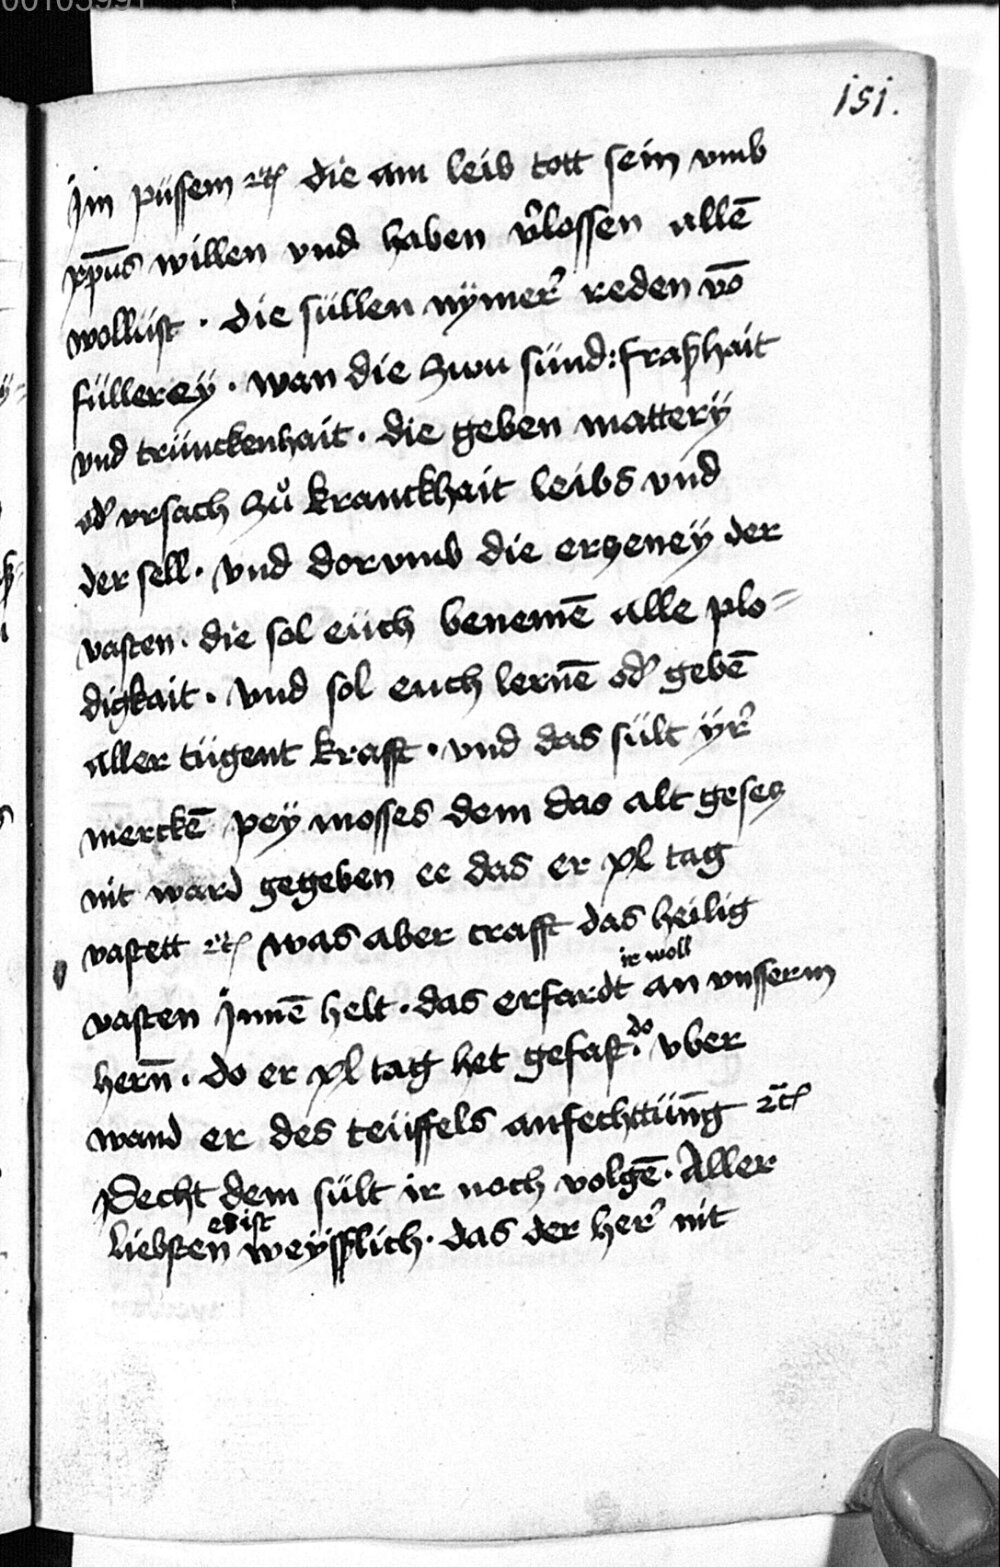 151.
Jm püssem ꝛc̃ die am leib tott sein vmb
xp̄us willen vnd haben v̾lossen allē
wollüst · die süllen nÿmer̾ reden vō
füllereÿ · wan die zwu sünd : fraßhait
vnd trünckenhait · die geben matterÿ
od̾ vrsach zů kranckhait leibs vnd
der sell · vnd dorvmb die erczeneÿ der
vasten · die sol eüch benemē alle plo=
digkait · vnd sol euch lernē od̾ gebē
aller tügent krafft · vnd das sült ÿr̾
merckē pey mosses dem das alt gesecz
nit ward gegeben ee das er xl tag
vastett ꝛc̃ was aber crafft das heilig
ir woll
vasten Jnnē helt · das erfardt an vnsserm
do
hern̄ · do er xl tag het gefast · vber
wand er des teüffels anfechttūng ꝛc̃
Secht dem sült ir noch volgē · Aller
es ist
liebsten weÿsslich · das der her̾ nit